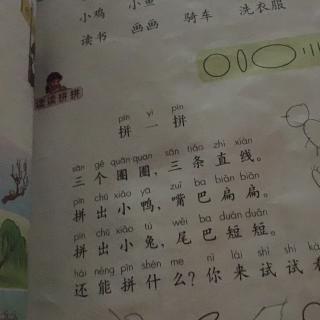 小鸡 小鱼
读书 画画 骑车 洗衣服
读读拼拼
pīn yi pīn
拼一拼
sān gè quān quan, sān tiáo zhí xiàn
三个圈圈，三条直线。
pīn chū xiǎo yā zuǐ ba biǎn biǎn
拼出小鸭，嘴巴扁扁。
pīn chū xiǎo tù wěi ba duǎn duǎn
拼出小兔，尾巴短短。
hái néng pīn shén me nǐ lái shì shi kàn
还能拼什么？你来试试看